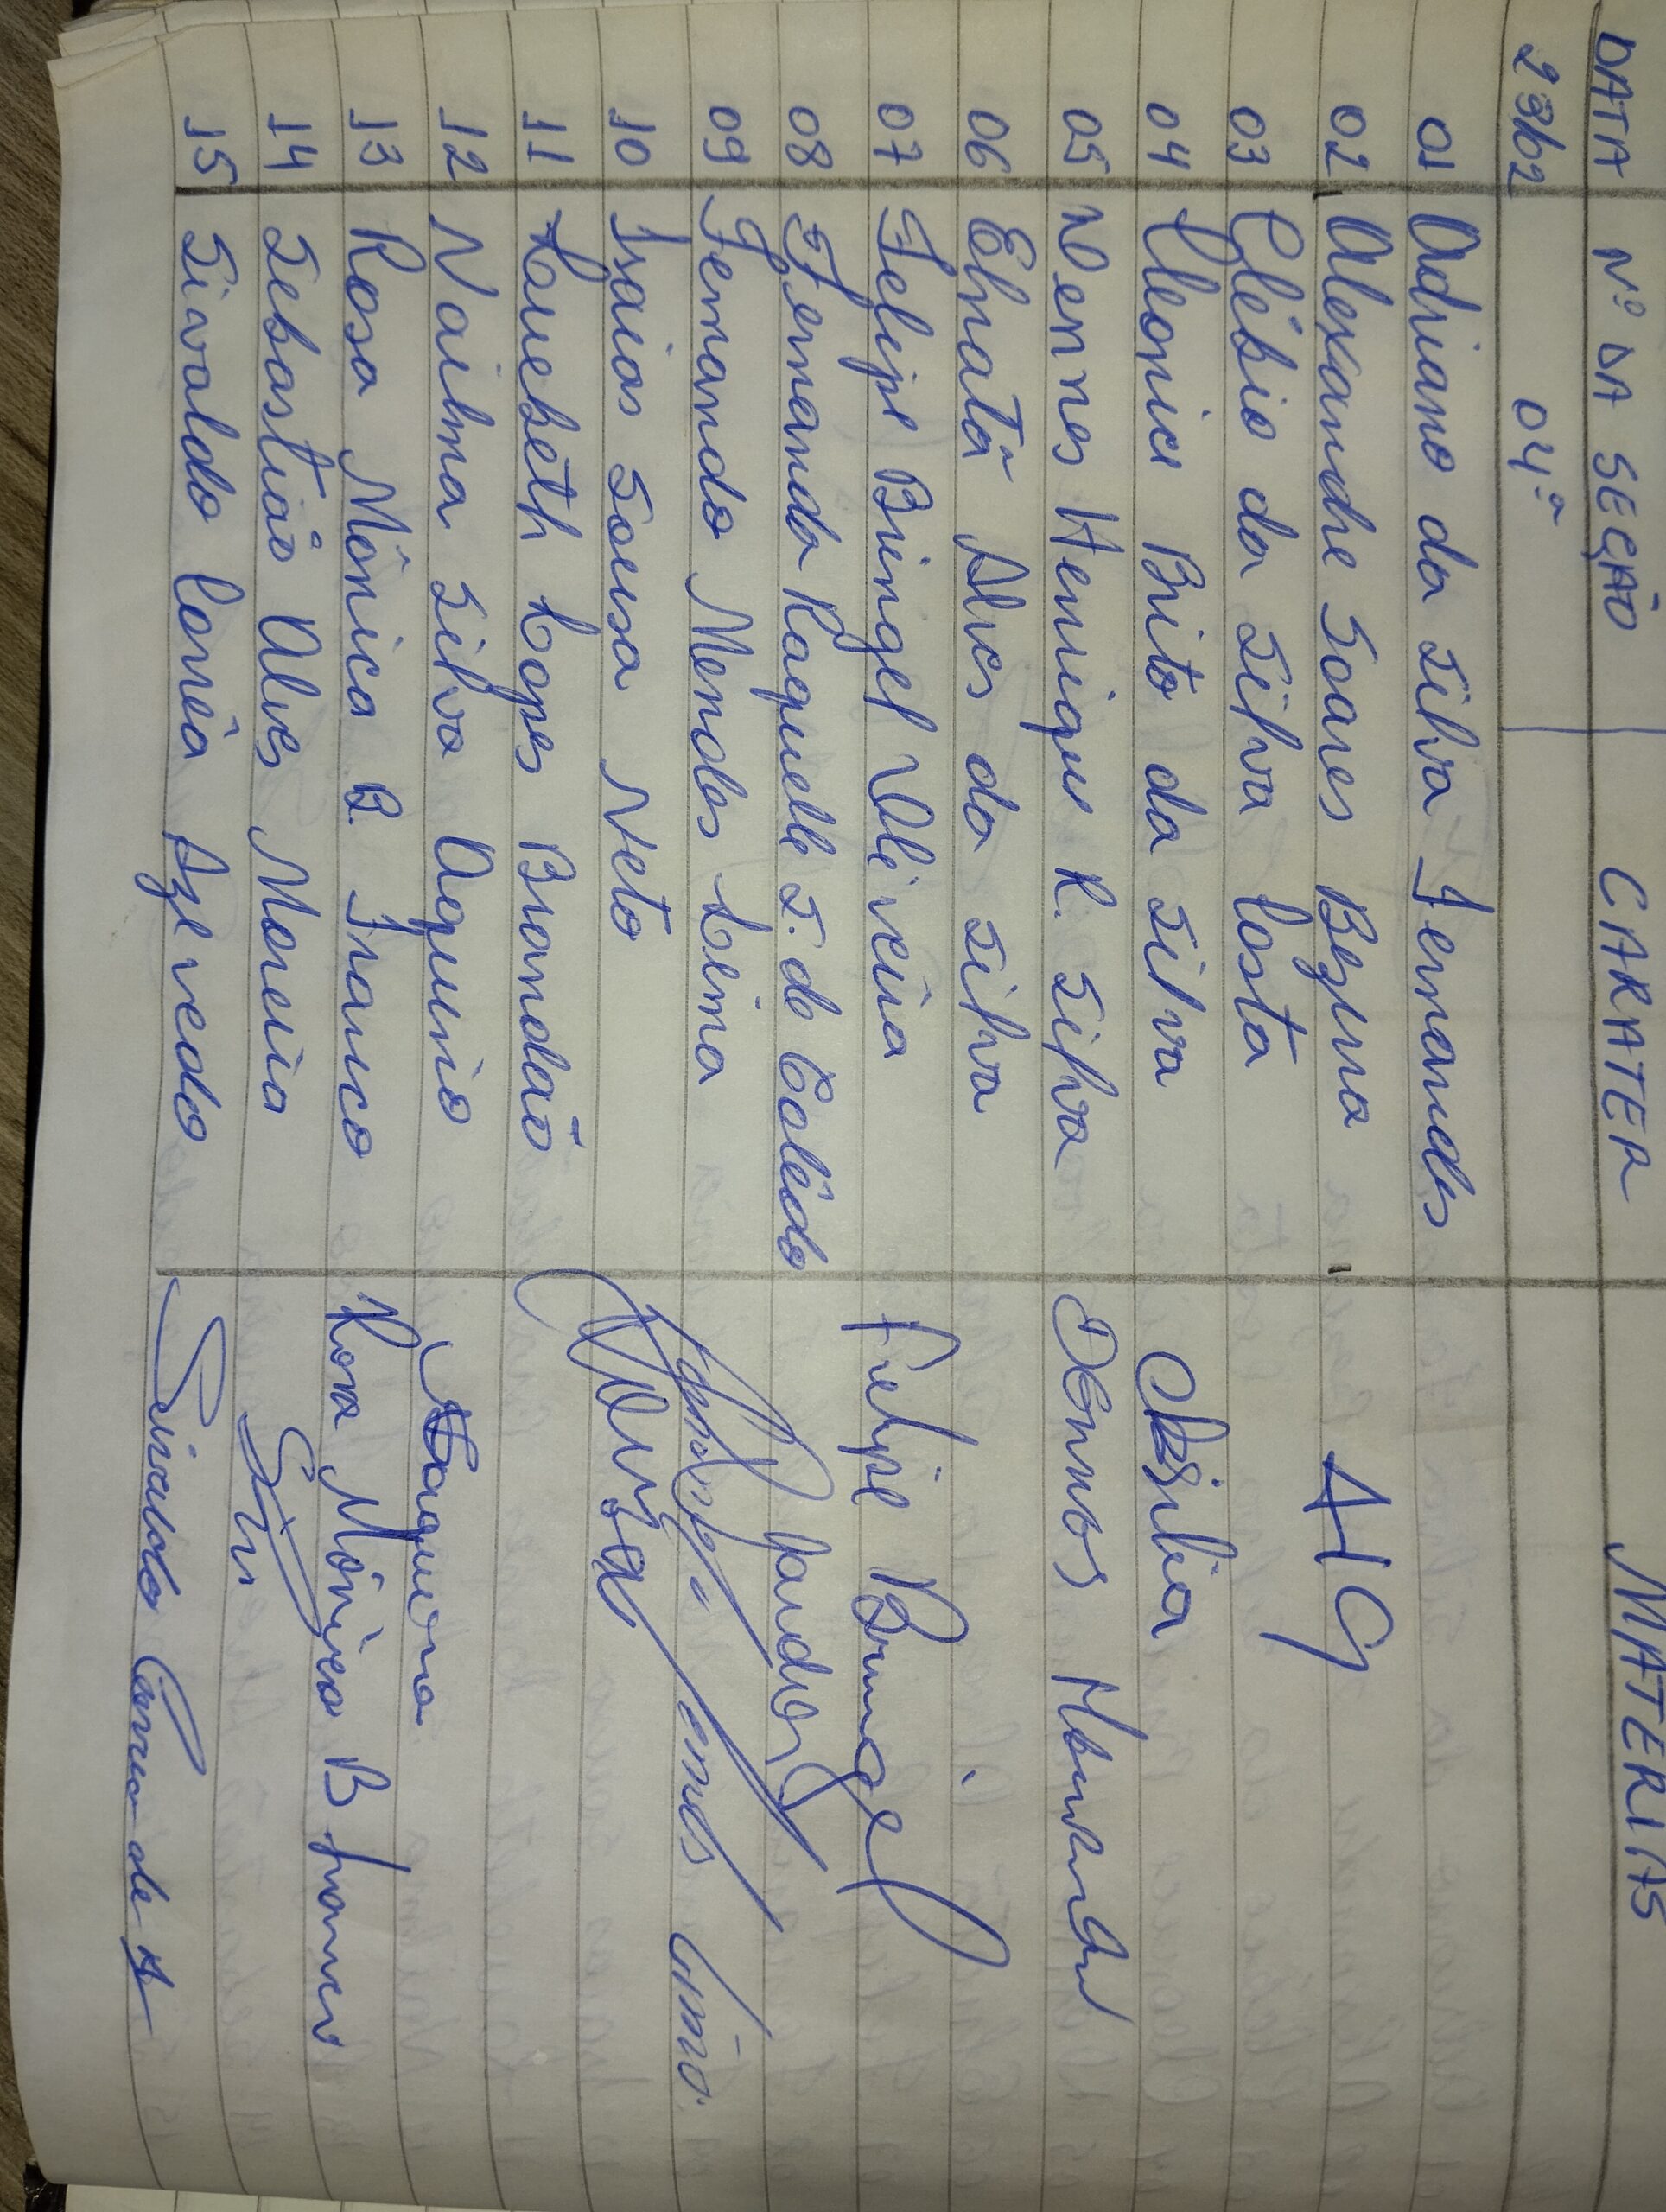 DATA Nº DA SEÇÃO CARATER MATERIAS
23/02 04ª
01 Adriano da Silva Fernandes
02 Alexandre Soares Bezerra
03 Clébio da Silva Costa
04 Cleonice Brito da Silva CBSilva
05 Dennes Henrique R. Silva Dennes Henrique
06 Elnatã Alves da Silva
07 Felipe Bringel Oliveira Felipe Bringel
08 Fernanda Raquelle S. de
09 Fernando Mendes Lima Lima
10 Isaias Sousa Neto
11 Louebeth Lopes Brandão
12 Nailma Silva Aquino
13 Rosa Mônica B. Franco Rosa Mônica B Franco
14 Sebastião Alves Moreira
15 Sivaldo Corrêa Azevedo Sivaldo Correa de A